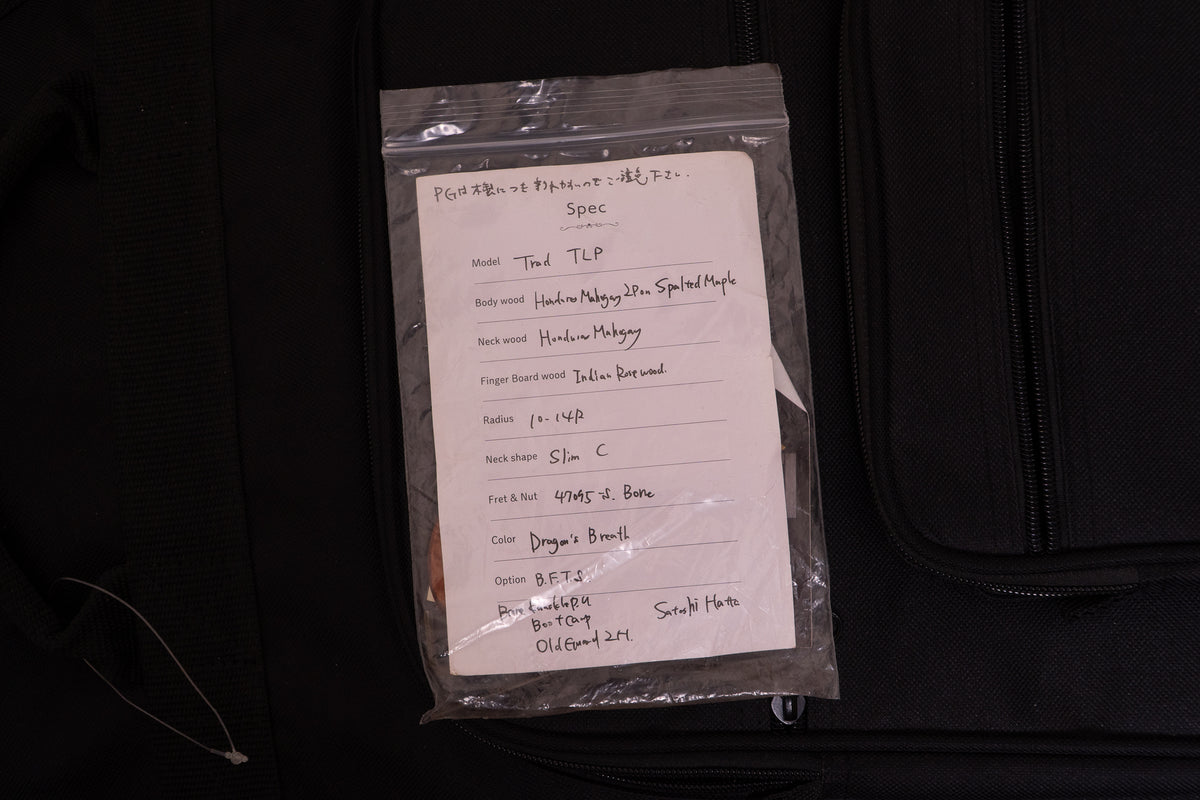 PGは木製につき割れやすいのでご注意下さい.
Spec
Model Trad TLP
Body wood Honduras Mahogany 2P on Spalted Maple
Neck wood Honduras Mahogany
Finger Board wood Indian Rosewood.
Radius 10-14R
Neck shape Slim C
Fret & Nut 47095-S. Bone
Color Dragon's Breath
Option B.F.T.S.
Bare Knuckle P.U
Boot Camp
Old Guard 2H.
Satoshi Hatta